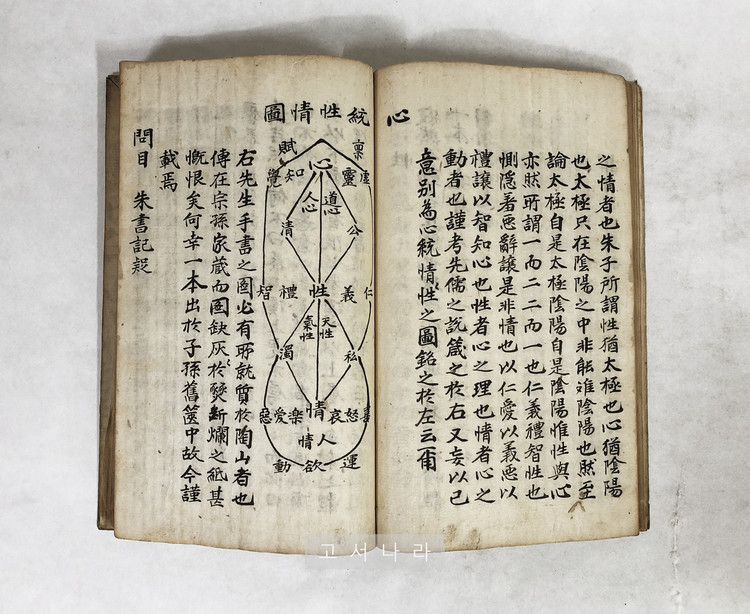 之情者也朱子所謂性猶太極也心猶陰陽
也太極只在陰陽之中非能離陰陽也然至
論太極自是太極陰陽自是陰陽惟性與心
亦然所謂一而二二而一也仁義禮智性也
惻隱羞惡辭讓是非情也以仁愛以義惡以
禮讓以智知心也性者心之理也情者心之
動者也謹考先儒之說箴之於右又妄以己
意別為心統情性之圖銘之於左云爾
心
統性情圖
稟賦
虛靈心知覺
道心
人心
公清
仁義性禮智
天性
氣性
私濁
喜怒哀情樂愛惡
人情
運欲動
右先生手書之圖必有所就質於陶山者也
傳在宗孫家藏而圖缺灰於燹新爛之紙甚
慨恨矣何幸一本出於子孫舊篋中故今謹
載焉
問目 朱書記疑
고서나라